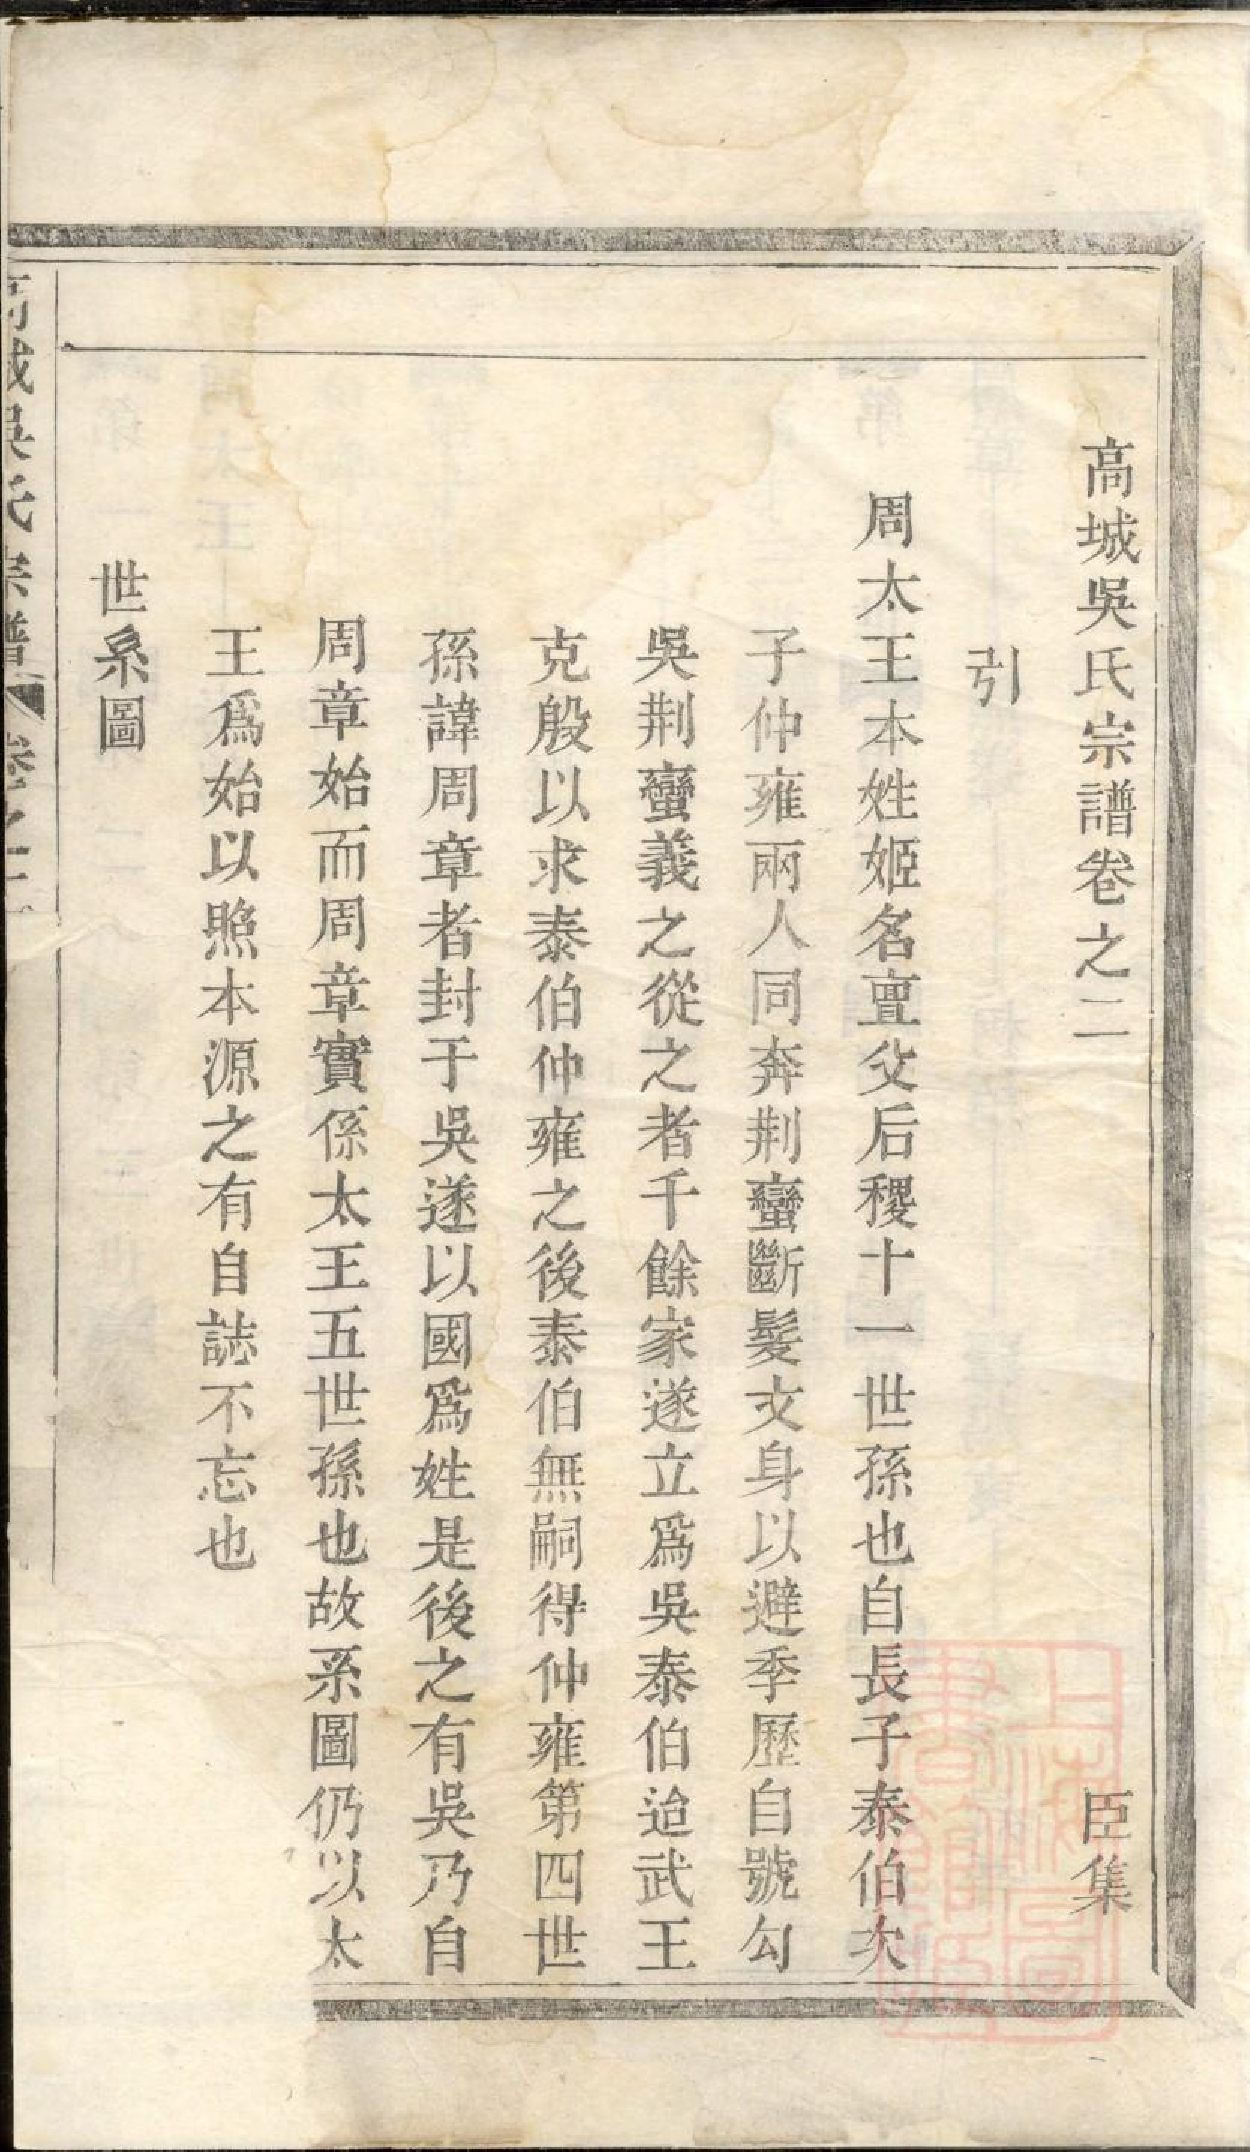 高城吳氏宗譜卷之二 臣集
引
周太王本姓姬名亶父后稷十一世孫也自長子泰伯次
子仲雍兩人同奔荆蠻斷髮文身以避季歷自號勾
吳荆蠻義之從之者千餘家遂立爲吳泰伯迨武王
克殷以求泰伯仲雍之後泰伯無嗣得仲雍第四世
孫諱周章者封于吳遂以國爲姓是後之有吳乃自
周章始而周章實係太王五世孫也故系圖仍以太
王爲始以照本源之有自誌不忘也
世系圖
高城吳氏宗譜 卷之二
上海圖書館藏